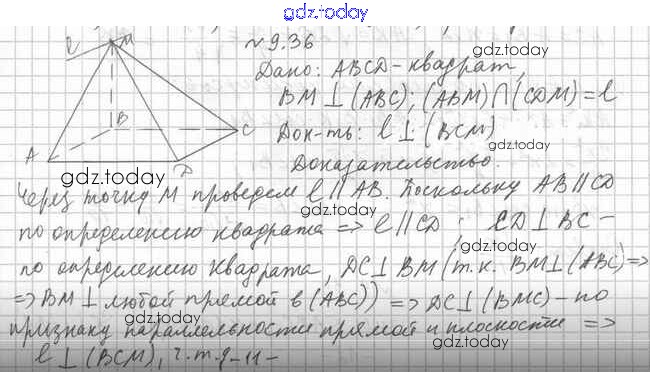 gdz.today
№ 9.36
gdz.today
Дано: ABCD - квадрат,
BM ⊥ (ABC); (ABM) ∩ (CDM) = l
gdz.today
Док-ть: l ⊥ (BCM)
gdz.today
Доказательство.
l M B C A D
gdz.today
Через точку M проведем l || AB. Поскольку AB || CD
gdz.today
по определению квадрата => l || CD ; CD ⊥ BC -
gdz.today
по определению квадрата, DC ⊥ BM (т.к. BM ⊥ (ABC) =>
=> BM ⊥ любой прямой в (ABC)) => DC ⊥ (BMC) - по
gdz.today
признаку параллельности прямой и плоскости =>
l ⊥ (BCM), ч.т.д.
gdz.today
gdz.today